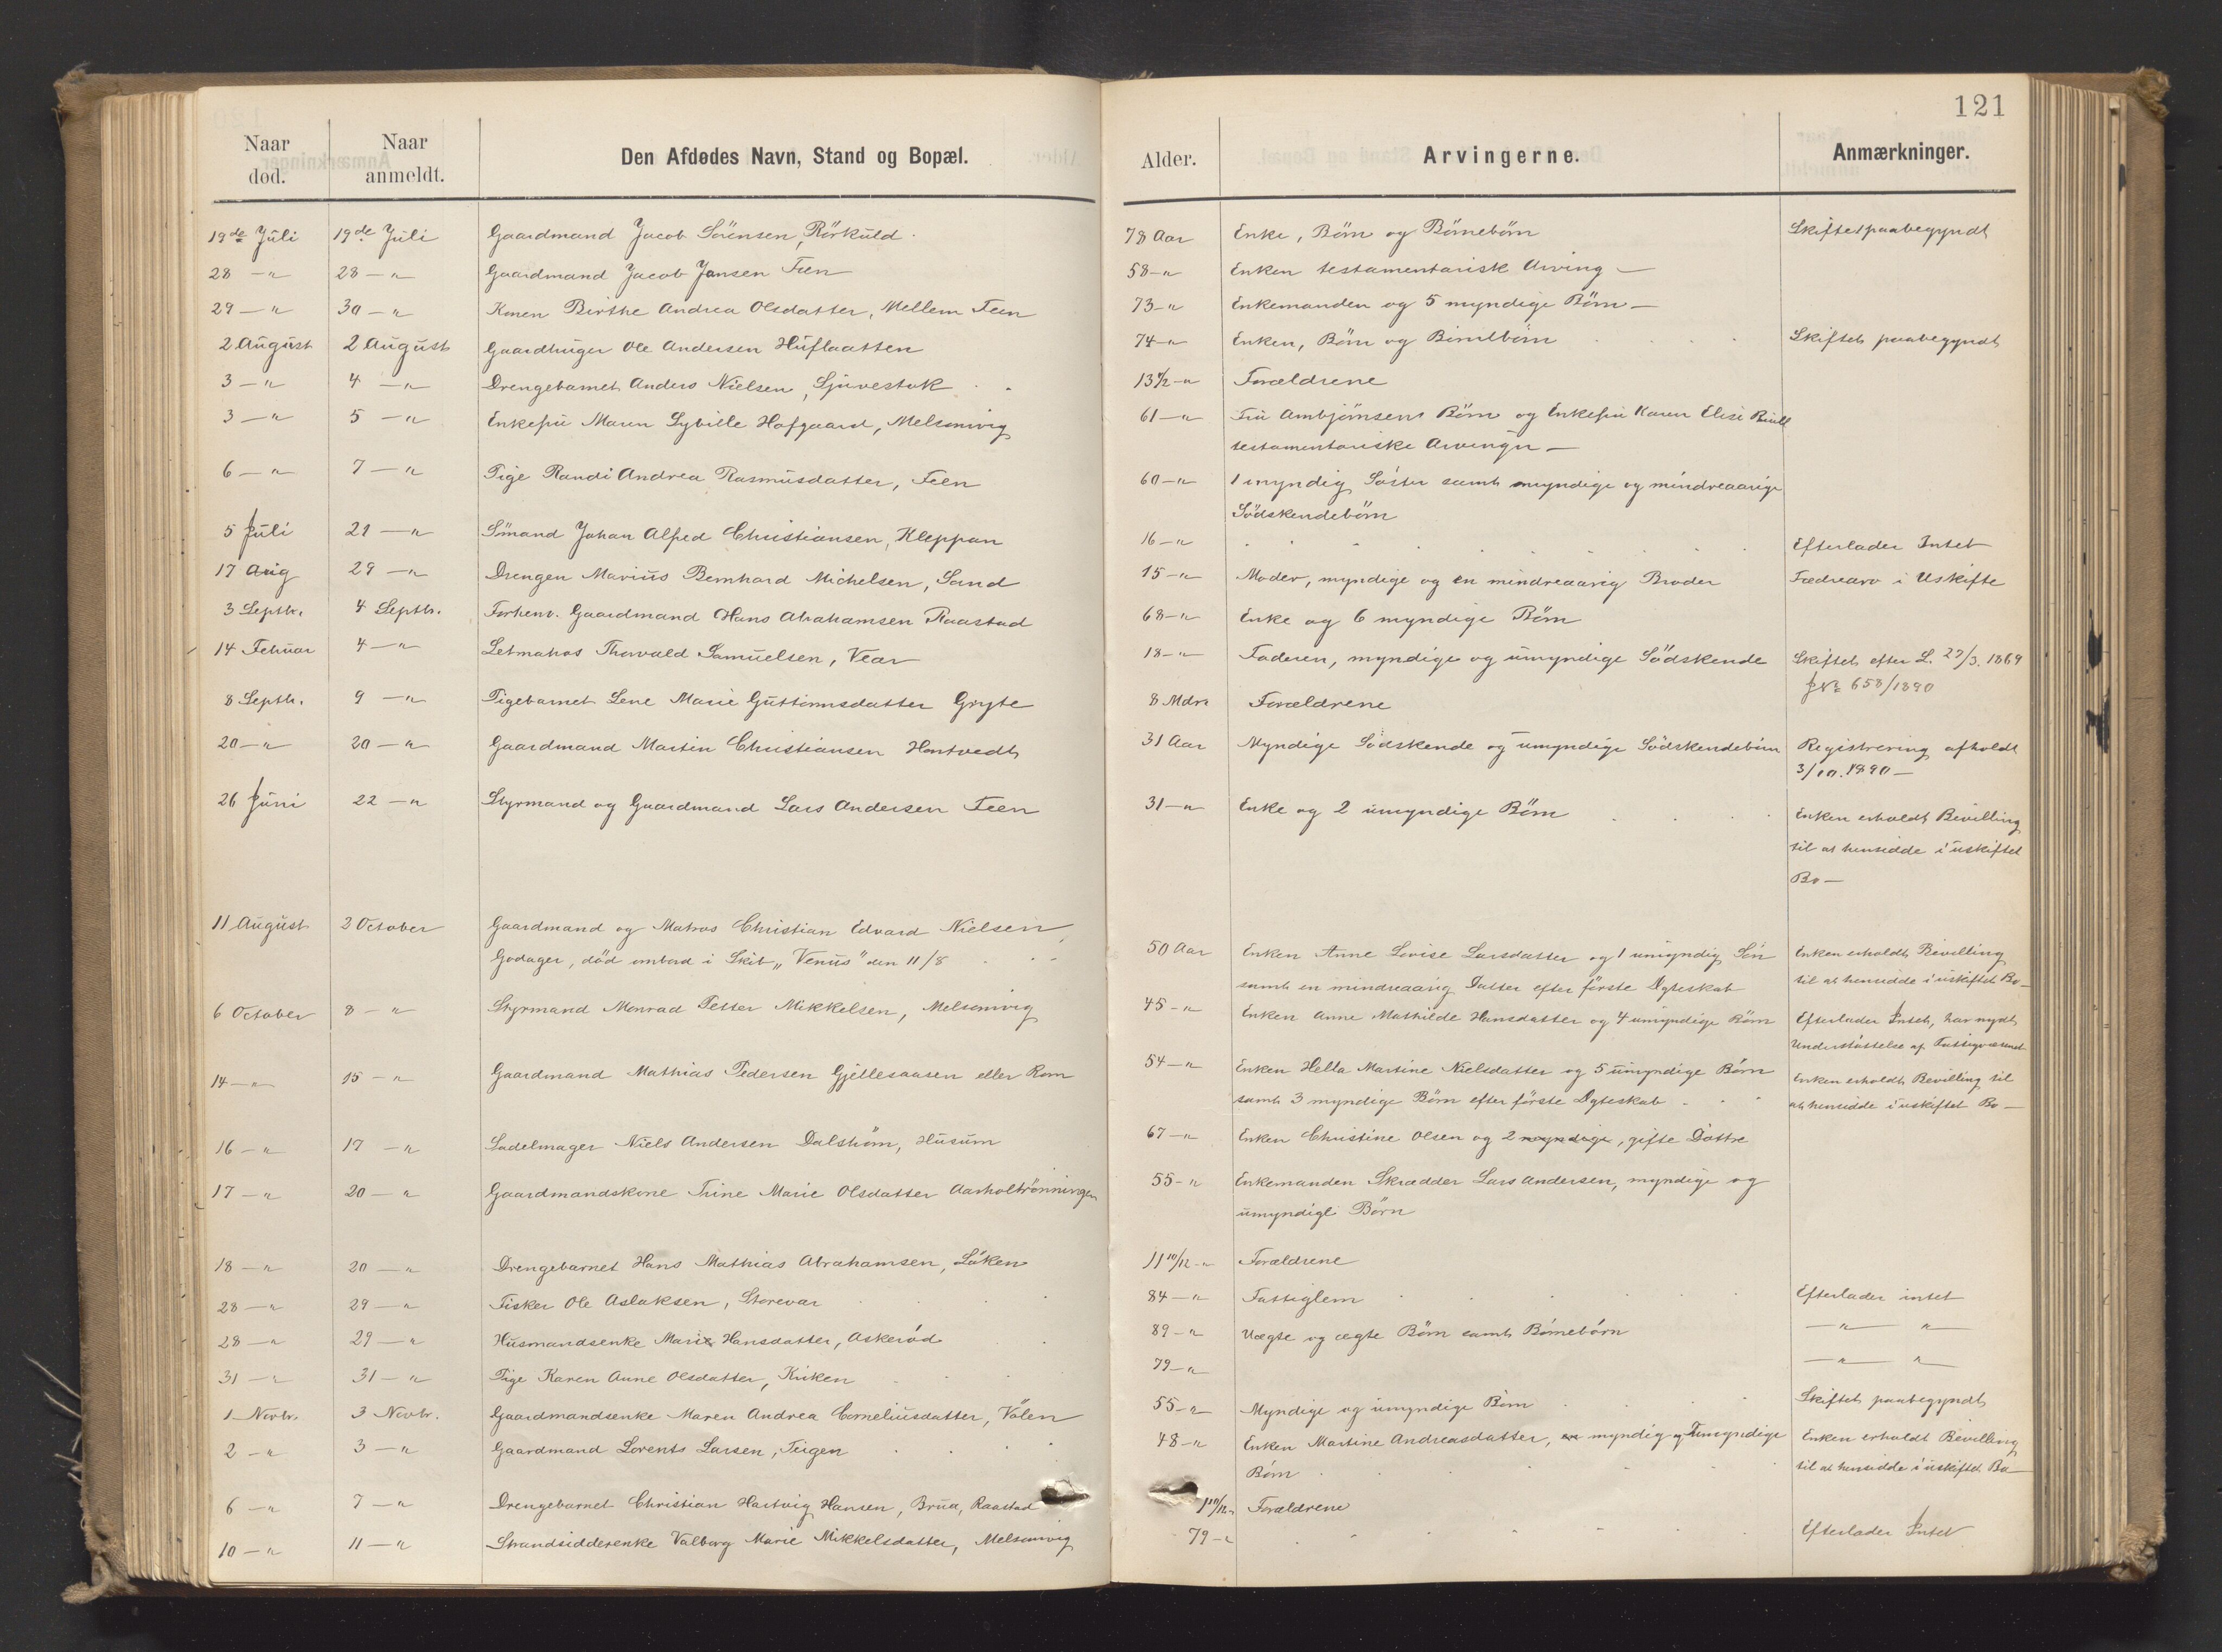 121
Naar død.
Naar anmeldt.
Den Afdødes Navn, Stand og Bopæl.
Alder.
Arvingerne.
Anmærkninger.
19de Juli 19de Juli Gaardmand Jacob Sörensen, Rörkuld. 78 Aar Enke, Börn og Börnebörn Skiftet paabegyndt
28 — " 28 — " Gaardmand Jacob Jansen Feen 58 — " Enken testamentarisk Arving —
29 — " 30 — " Konen Birthe Andrea Olsdatter, Mellem Feen 73 — " Enkemanden og 5 myndige Börn —
2 August 2 August Gaardbruger Ole Andersen Huflaatten 74 — " Enken, Börn og Börnebörn Skiftet paabegyndt
3 — " 4 — " Drengebarnet Anders Nielsen, Sjuvestok 13 1/2 — " Forældrene
3 — " 5 — " Enkefru Maren Sybille Hofgaard, Melsomvig 61 — " Fru Ambjörnsens Börn og Enkefru Karen Elise Buill
testamentariske Arvinger —
6 — " 7 — " Pige Randi Andrea Rasmusdatter, Feen 60 — " 1 myndig Söster samt myndige og mindreaarige
Södskendebörn
5 Juli 21 — " Sömand Johan Alfred Christiansen, Kleppan 16 — " Efterlader Intet
17 Aug 29 — " Drengen Marius Bernhard Michelsen, Sand 15 — " Moder, myndige og en mindreaarig Broder Fædrearv i Uskifte
3 Septbr. 4 Septb. Forhenv. Gaardmand Hans Abrahamsen Raastad 68 — " Enke og 6 myndige Börn
14 Februar 4 — " Letmatros Thorvald Samuelsen, Vear 18 — " Faderen, myndige og umyndige Södskende Skiftet efter L. 27/3. 1869
JNo 658/1890
8 Septb. 9 — " Pigebarnet Lene Marie Guttormsdatter Gryte 8 Mdr Forældrene
20 — " 20 — " Gaardmand Martin Christiansen Hontvedt 31 Aar Myndige Södskende og umyndige Södskendebörn Registrering afholdt
3/10. 1890 —
26 Juni 22 — " Styrmand og Gaardmand Lars Andersen Feen 31 — " Enke og 2 umyndige Börn Enken erholdt Bevilling
til at hensidde i uskiftet
Bo —
11 August 2 October Gaardmand og Matros Christian Edvard Nielsen,
Godager, död ombord i Skib „Venus" den 11/8 50 Aar Enken Anne Lovise Larsdatter og 1 umyndig Sön Enken erholdt Bevilling
samt en mindreaarig Datter efter förste Ægteskab til at hensidde i uskiftet Bo —
6 October 8 — " Styrmand Monrad Petter Mikkelsen, Melsomvig 45 — " Enken Anne Mathilde Hansdatter og 4 umyndige Börn Efterlader Intet, har nydt
Understöttelse af Fattigvæsenet
14 — " 15 — " Gaardmand Mathias Pedersen Gjellesaasen eller Rom 54 — " Enken Hella Martine Nielsdatter og 5 umyndige Börn Enken erholdt Bevilling til
samt 3 myndige Börn efter förste Ægteskab at hensidde i uskiftet Bo —
16 — " 17 — " Sadelmager Niels Andersen Dalström, Husum 67 — " Enken Christine Olsen og 2 myndige, gifte Döttre
17 — " 20 — " Gaardmandskone Trine Marie Olsdatter Aarholtrönningen 55 — " Enkemanden Skrædder Lars Andersen, myndige og
umyndige Börn
18 — " 20 — " Drengebarnet Hans Mathias Abrahamsen, Löken 11 10/12 — " Forældrene
28 — " 29 — " Fisker Ole Aslaksen, Storevar 84 — " Fattiglem Efterlader intet
28 — " 29 — " Husmandsenke Marie Hansdatter, Askeröd 89 — " Uægte og ægte Börn samt Börnebörn — " — " —
31 — " 31 — " Pige Karen Anne Olsdatter, Kirken 79 — " — " — " —
1 Novbr. 3 Novbr. Gaardmandsenke Maren Andrea Corneliusdatter, Völen 55 — " Myndige og umyndige Börn Skiftet paabegyndt
2 — " 3 — " Gaardmand Lorents Larsen, Teigen 48 — " Enken Martine Andreasdatter, myndig og umyndige Enken erholdt Bevilling
Börn til at hensidde i uskiftet Bo
6 — " 7 — " Drengebarnet Christian Hartvig Hansen, Brua, Raastad 1 10/12 " Forældrene
10 — " 11 — " Strandsidderenke Valborg Marie Mikkelsdatter, Melsomvig 79 — " Efterlader Intet